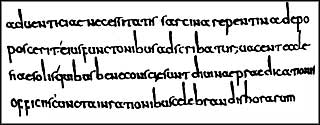 aduenticiae necessitatis sarcina repentina depo
poscerit eius functonibus adscribatur; uacent eccle
siae solis quibus bene consciae sunt diuinae praedicationum
officiis cuncta in rationibus celebrandis horarum